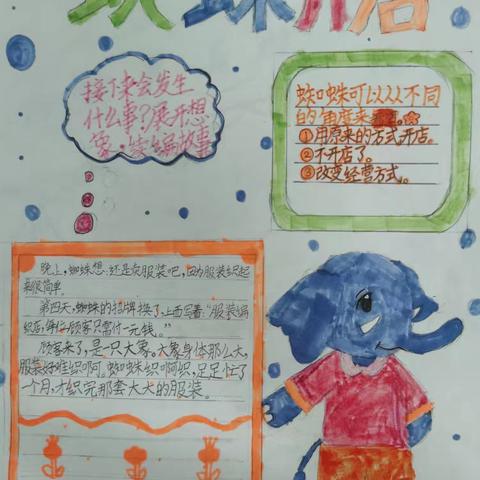 蜘蛛开店
接下来会发生
什么事?展开想
象,续编故事
蜘蛛可以从不同
的角度来。
①用原来的方式开店。
②不开店了。
③改变经营方式。
晚上,蜘蛛想:还是卖服装吧,因为服装织起
来很简单。
第四天,蜘蛛的招牌换了,上面写着:“服装编
织店,每位顾客只需付一元钱。”
顾客来了,是一只大象。大象身体那么大,
服装好难织啊。蜘蛛织啊织,足足忙了
一个月,才织完那套大大的服装。